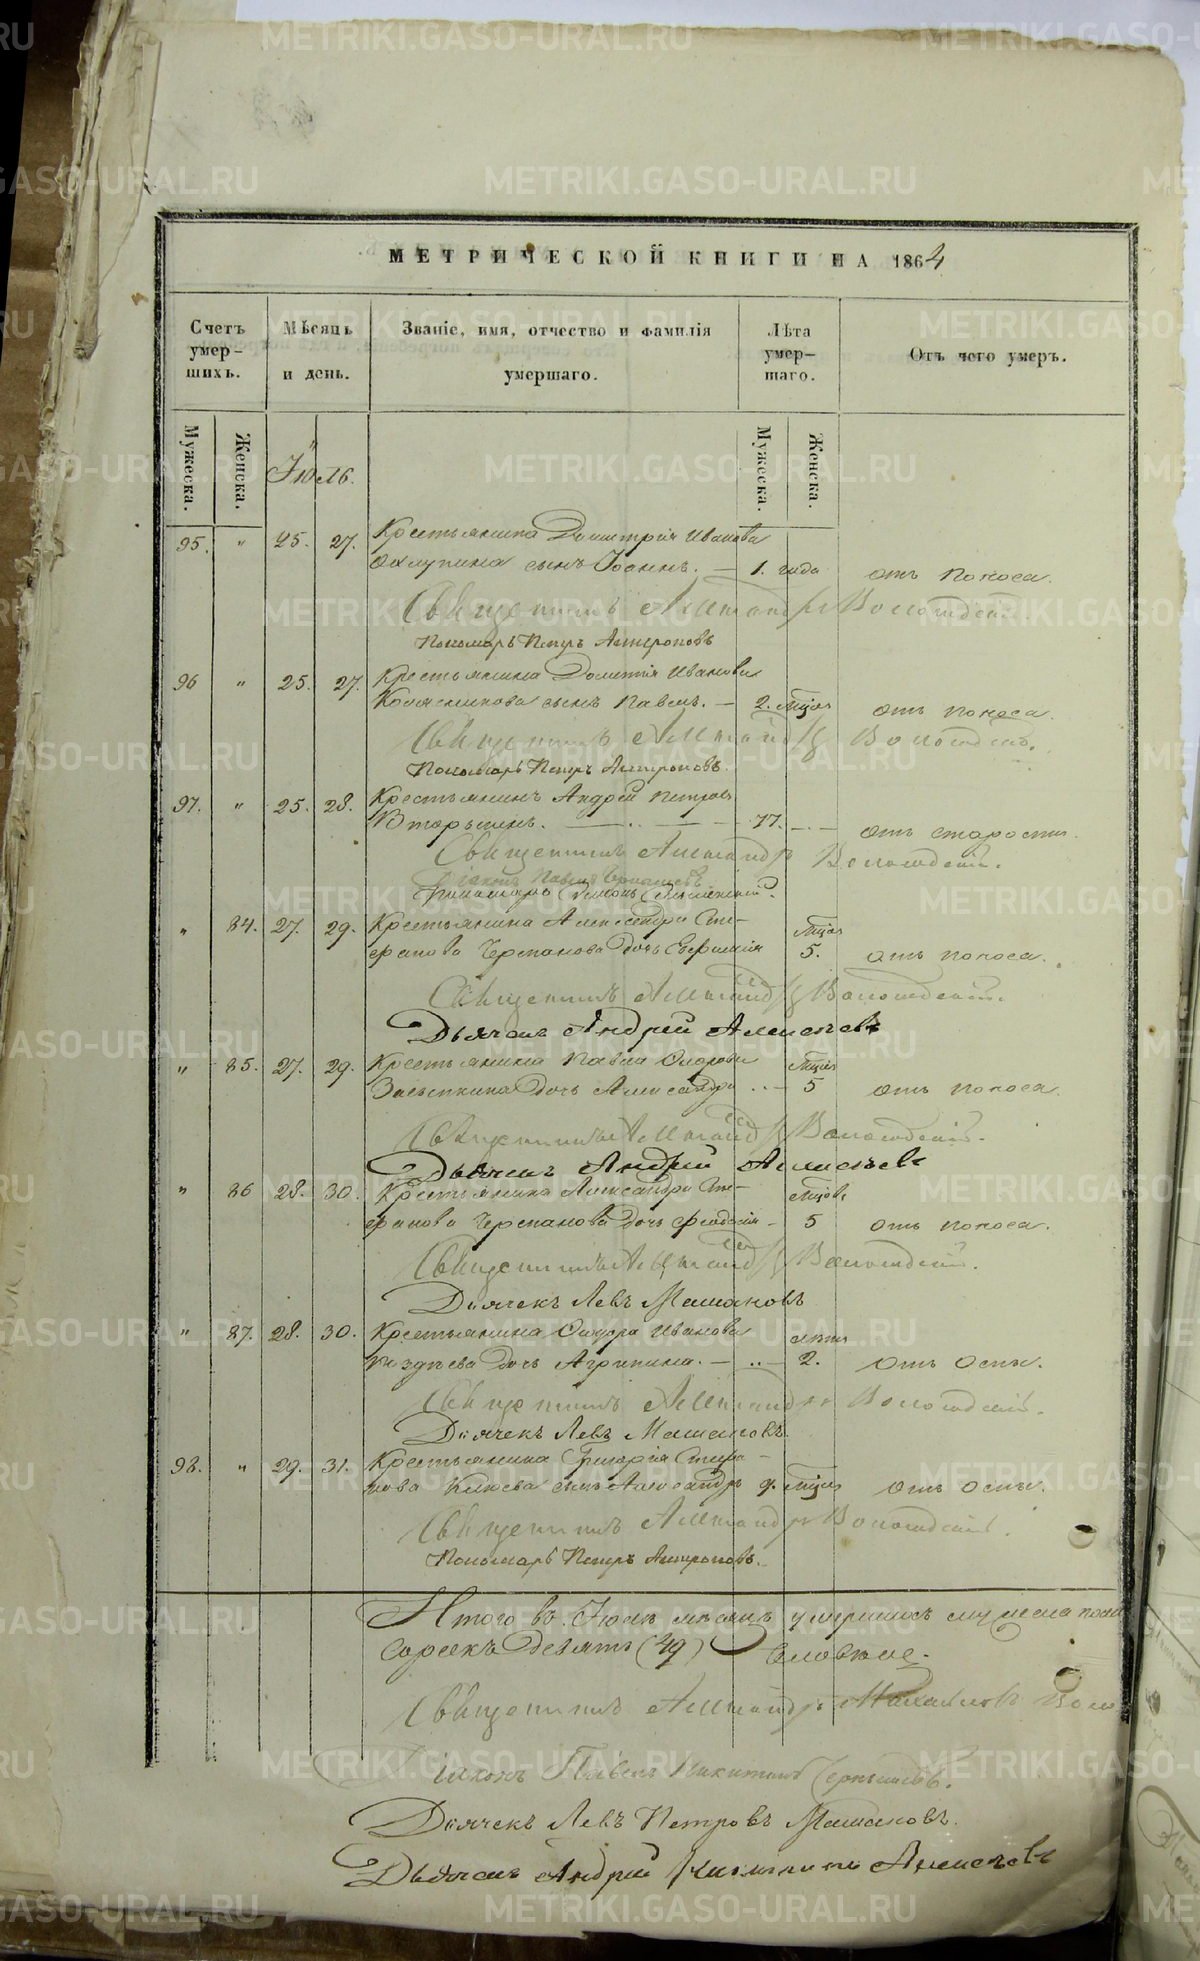 МЕТРИЧЕСКОЙ КНИГИ НА 1864
Счетъ умер-
шихъ.
Мѣсяцъ
и день.
Званіе, имя, отчество и фамилія
умершаго.
Лѣта
умер-
шаго.
Отъ чего умеръ.
Мужеска.
Женска.
Іюль.
Мужеска.
Женска.
95. " 25. 27. Крестьянина Димитрія Иванова
сынъ Іоаннъ. — 1. года отъ поноса.
Священникъ Александръ
Пономарь Петръ Антроповъ
96 " 25. 27. Крестьянина Дометія Иванова
сынъ Павелъ. — 2. мѣсяц отъ поноса.
Священникъ Александръ
Пономарь Петръ Антроповъ.
97. " 25. 28. Крестьянинъ Андрей Петровъ
Вторыгинъ. — 77. — отъ старости.
Священникъ Александръ
Діаконъ Павелъ Чернышевъ
Пономарь
" 84. 27. 29. Крестьянина Александра Сте-
фанова Черепанова дочь Евфимія мѣсяц 5. отъ поноса.
Священникъ Александръ
Дьячекъ Андрей Алексѣевъ
" 85. 27. 29. Крестьянина Павла мѣсяц
дочь Александра — 5 отъ поноса.
Священникъ Александръ
Дьячекъ Андрей Алексѣевъ
" 86 28. 30. Крестьянина Александра Сте- мѣсяцов
фанова Черепанова дочь Феодосія — 5 отъ поноса.
Священникъ Александръ
Дьячекъ Левъ Машановъ
" 87. 28. 30. Крестьянина Сидора Иванова лѣтъ
дочь Агрипина. — 2. отъ оспы.
Священникъ Александръ
Дьячекъ Левъ Машановъ.
98. " 29. 31. Крестьянина Григорія Степа-
нова Клюева сынъ Александръ 9. мѣсяц отъ оспы.
Священникъ Александръ
Пономарь Петръ Антроповъ.
Итого въ Іюлѣ мѣсяцѣ умершихъ мужеска пола
сорокъ девять (49) человѣкъ.
Священникъ Александръ Михайловъ
Діаконъ Павелъ Никитинъ Чернышевъ.
Дьячекъ Левъ Петровъ Машановъ.
Дьячекъ Андрей Алексѣевъ
METRIKI.GASO-URAL.RU